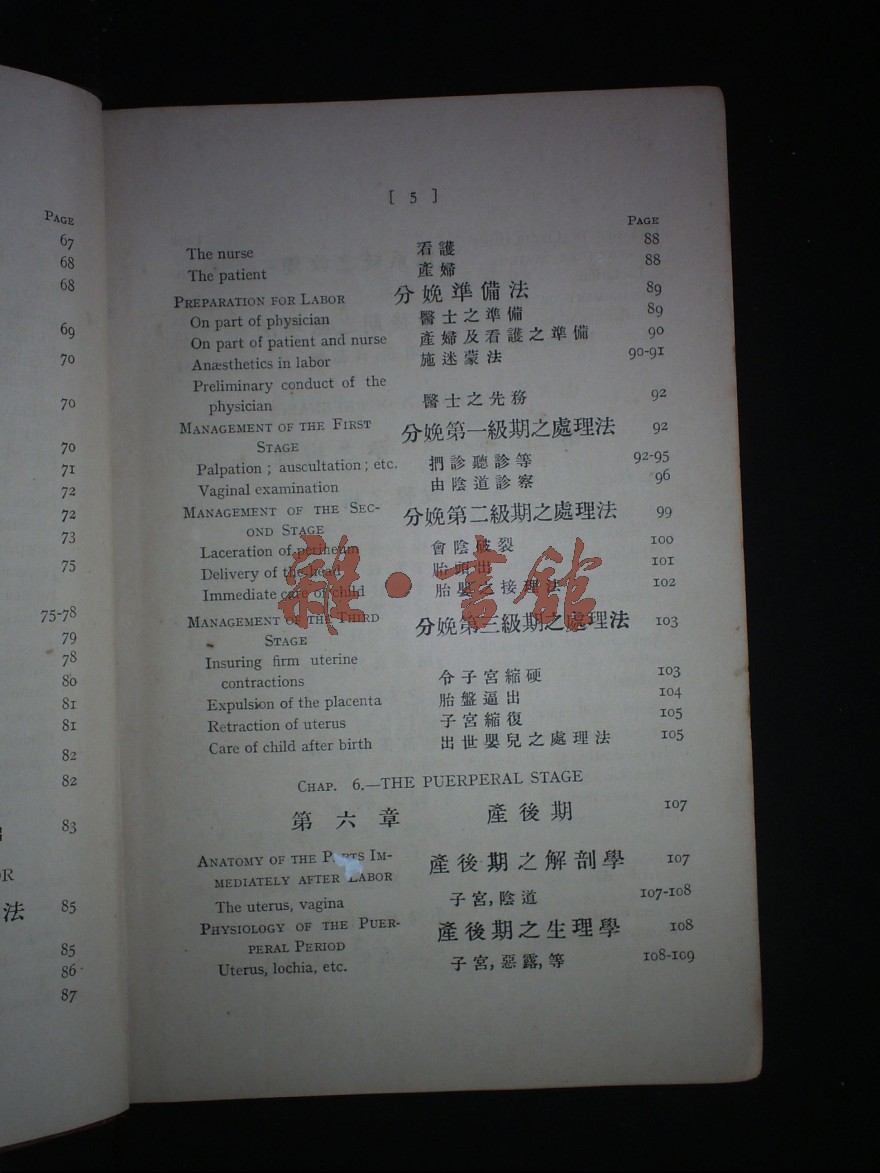 PAGE
67
68
68
69
70
70
70
71
72
72
73
75
75-78
79
78
80
81
81
82
82
83
OR
法 85
85
86
87
[ 5 ]
PAGE
The nurse 看護 88
The patient 產婦 88
PREPARATION FOR LABOR 分娩準備法 89
On part of physician 醫士之準備 89
On part of patient and nurse 產婦及看護之準備 90
Anæsthetics in labor 施迷蒙法 90-91
Preliminary conduct of the
physician 醫士之先務 92
MANAGEMENT OF THE FIRST
STAGE 分娩第一級期之處理法 92
Palpation ; auscultation ; etc. 捫診聽診等 92-95
Vaginal examination 由陰道診察 96
MANAGEMENT OF THE SEC-
OND STAGE 分娩第二級期之處理法 99
Laceration of perineum 會陰破裂 100
Delivery of the head 胎頭出 101
Immediate care of child 胎嬰之接理法 102
MANAGEMENT OF THE THIRD
STAGE 分娩第三級期之處理法 103
Insuring firm uterine
contractions 令子宮縮硬 103
Expulsion of the placenta 胎盤逼出 104
Retraction of uterus 子宮縮復 105
Care of child after birth 出世嬰兒之處理法 105
CHAP. 6.—THE PUERPERAL STAGE
第六章 產後期 107
ANATOMY OF THE PARTS IM-
MEDIATELY AFTER LABOR 產後期之解剖學 107
The uterus, vagina 子宮,陰道 107-108
PHYSIOLOGY OF THE PUER-
PERAL PERIOD 產後期之生理學 108
Uterus, lochia, etc. 子宮,惡露,等 108-109
雜·書館